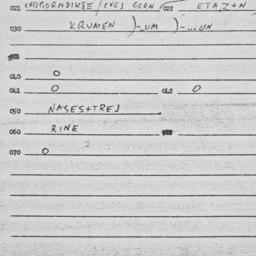 021 (NE)GORNDIKSE / (NE) GORN 022 ETA, Z+N
030 KRUMEN )-UM )-...UN
040 0
041 0 042 0
050 NASES+TREJ
060 RINE
070 0